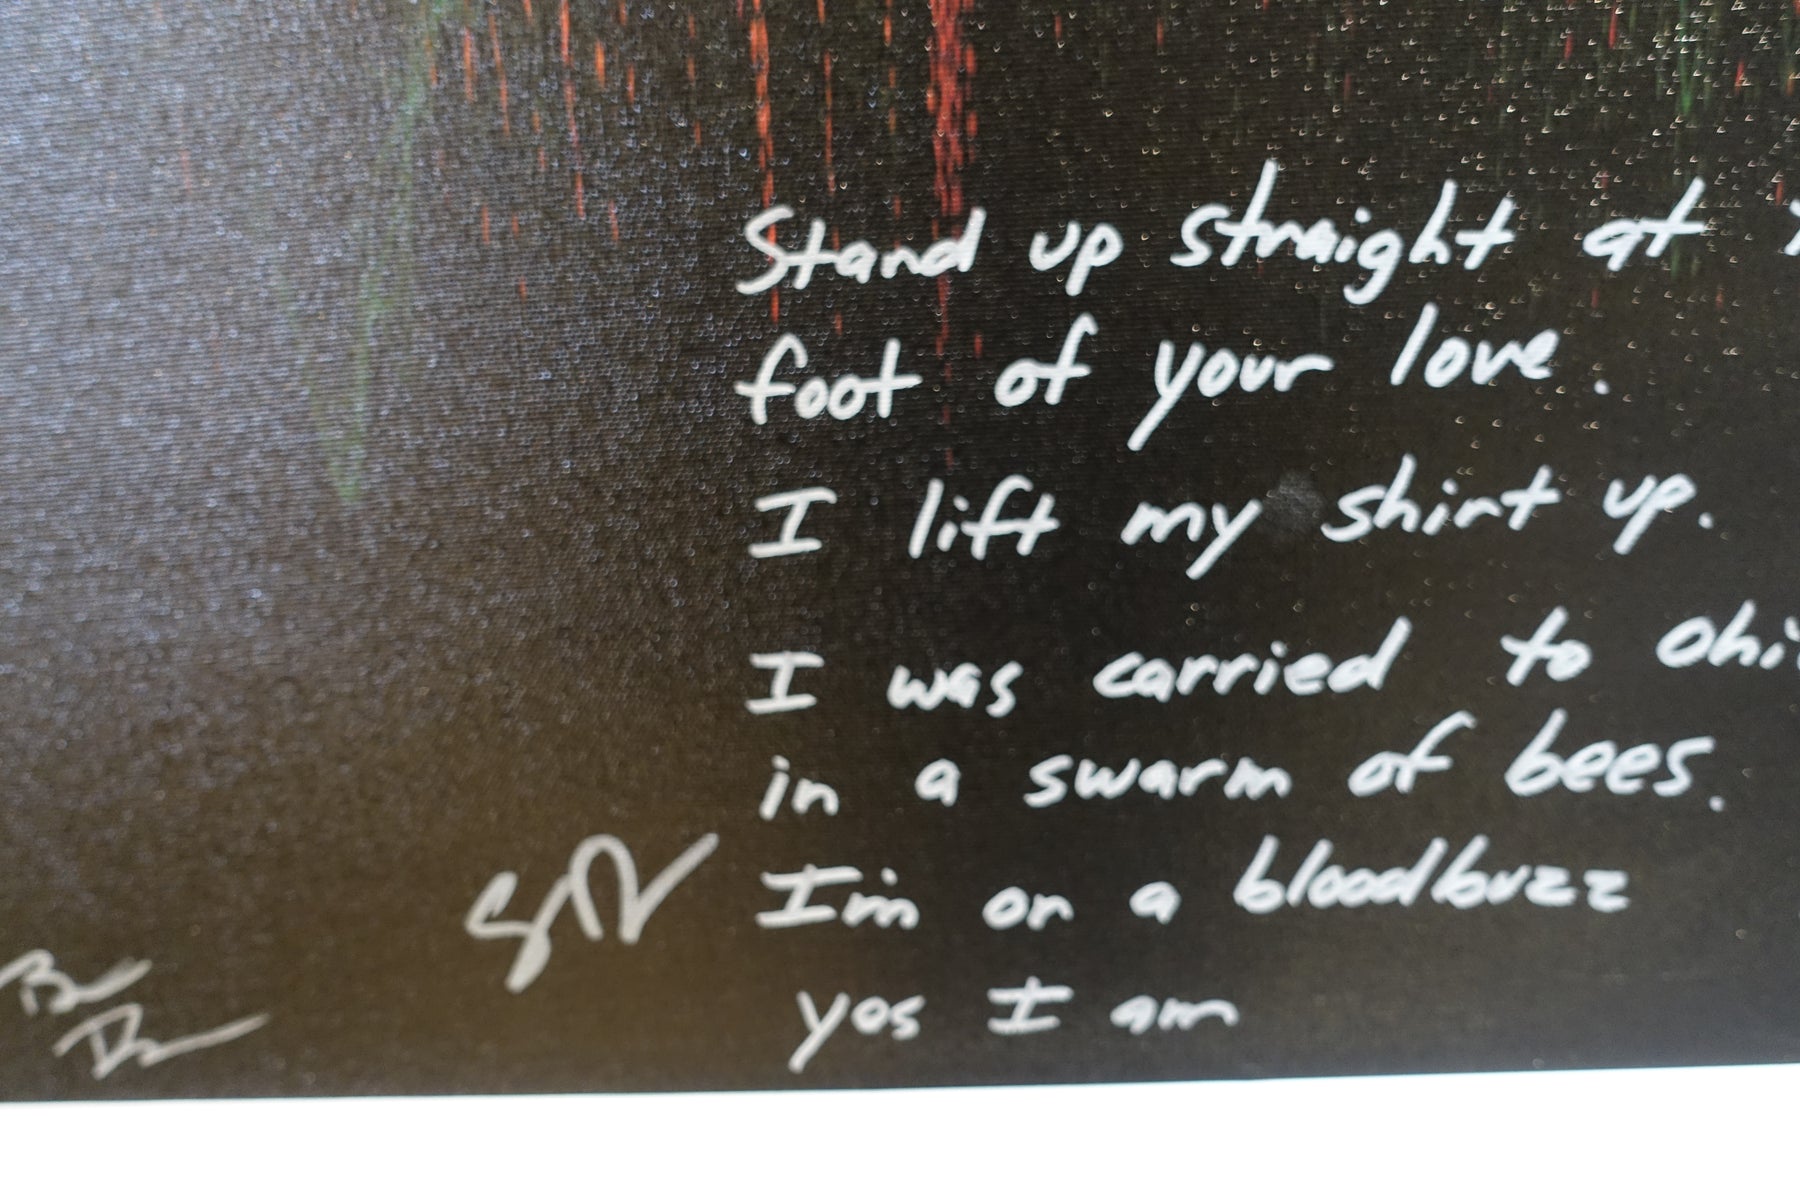 Stand up straight at
foot of your love.
I lift my shirt up.
I was carried to Ohi
in a swarm of bees.
I'm on a bloodbuzz
yes I am